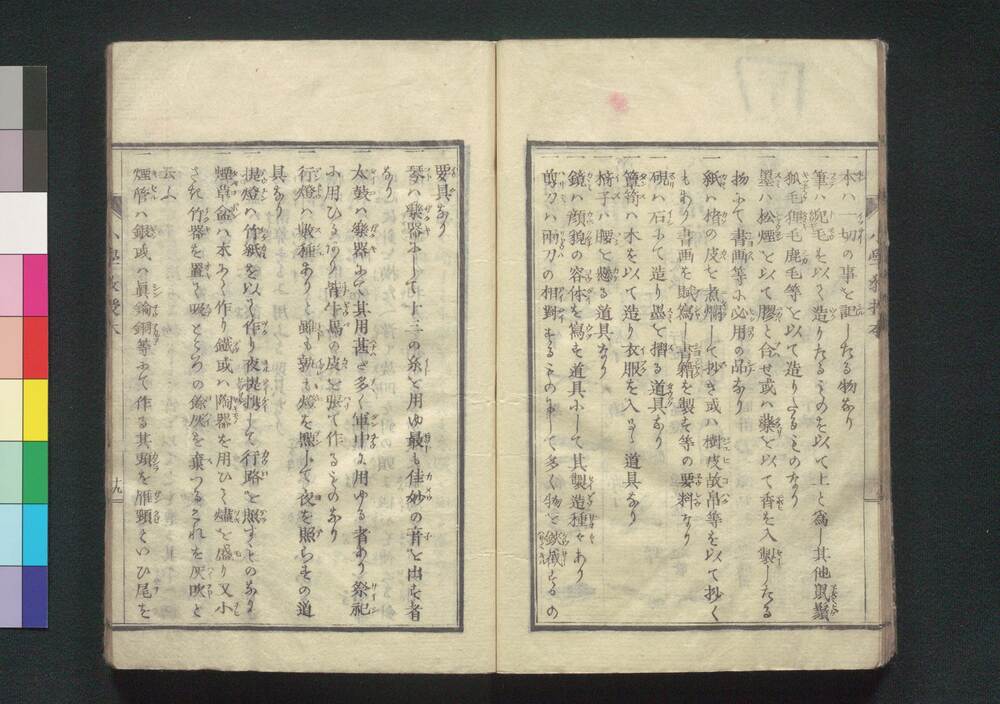 一 本ハ一切の事を記したる物なり
一 筆ハ兎毛を以て造りたるものを以て上と為し其他鼠鬚
狐毛狸毛鹿毛等を以て造りたるものなり
一 墨ハ松煙を以て膠と合せ或ハ薬を以て香を入製したる
物にて書画等に必用の品なり
一 紙ハ楮の皮を煮爛して抄き或ハ樹皮故帛等を以て抄く
もあり書画を賦寫し書籍を製る等の要料なり
一 硯ハ石にて造り墨を摺る道具なり
一 簞笥ハ木を以て造り衣服を入るゝ道具なり
一 椅子ハ腰を懸る道具なり
一 鏡ハ顔貌の容体を寫す道具にして其製造種々あり
一 剪刀ハ兩刀の相對するものにして多く物を鋏截するの
要具なり
一 琴ハ樂器にして十三の糸を用ゆ最も佳妙の音を出す者
なり
一 太鼓ハ樂器にて其用甚だ多く軍中に用ゆる者あり祭祀
に用ひるあり皆牛馬の皮を張て作るものなり
一 行燈ハ數種ありと雖も孰も燈を點して夜を照らすの道
具なり
一 提燈ハ竹紙を以て作り夜提携して行路を照すものなり
一 煙草盆ハ木にて作り鐵或ハ陶器を用ひて爐を盛り又小
さき竹器を置く吸ところの餘灰を棄つるこれを灰吹と
云ふ
一 煙管ハ銀或ハ眞鍮銅等にて作る其頭を雁頸といひ尾を
小學教授本
十九